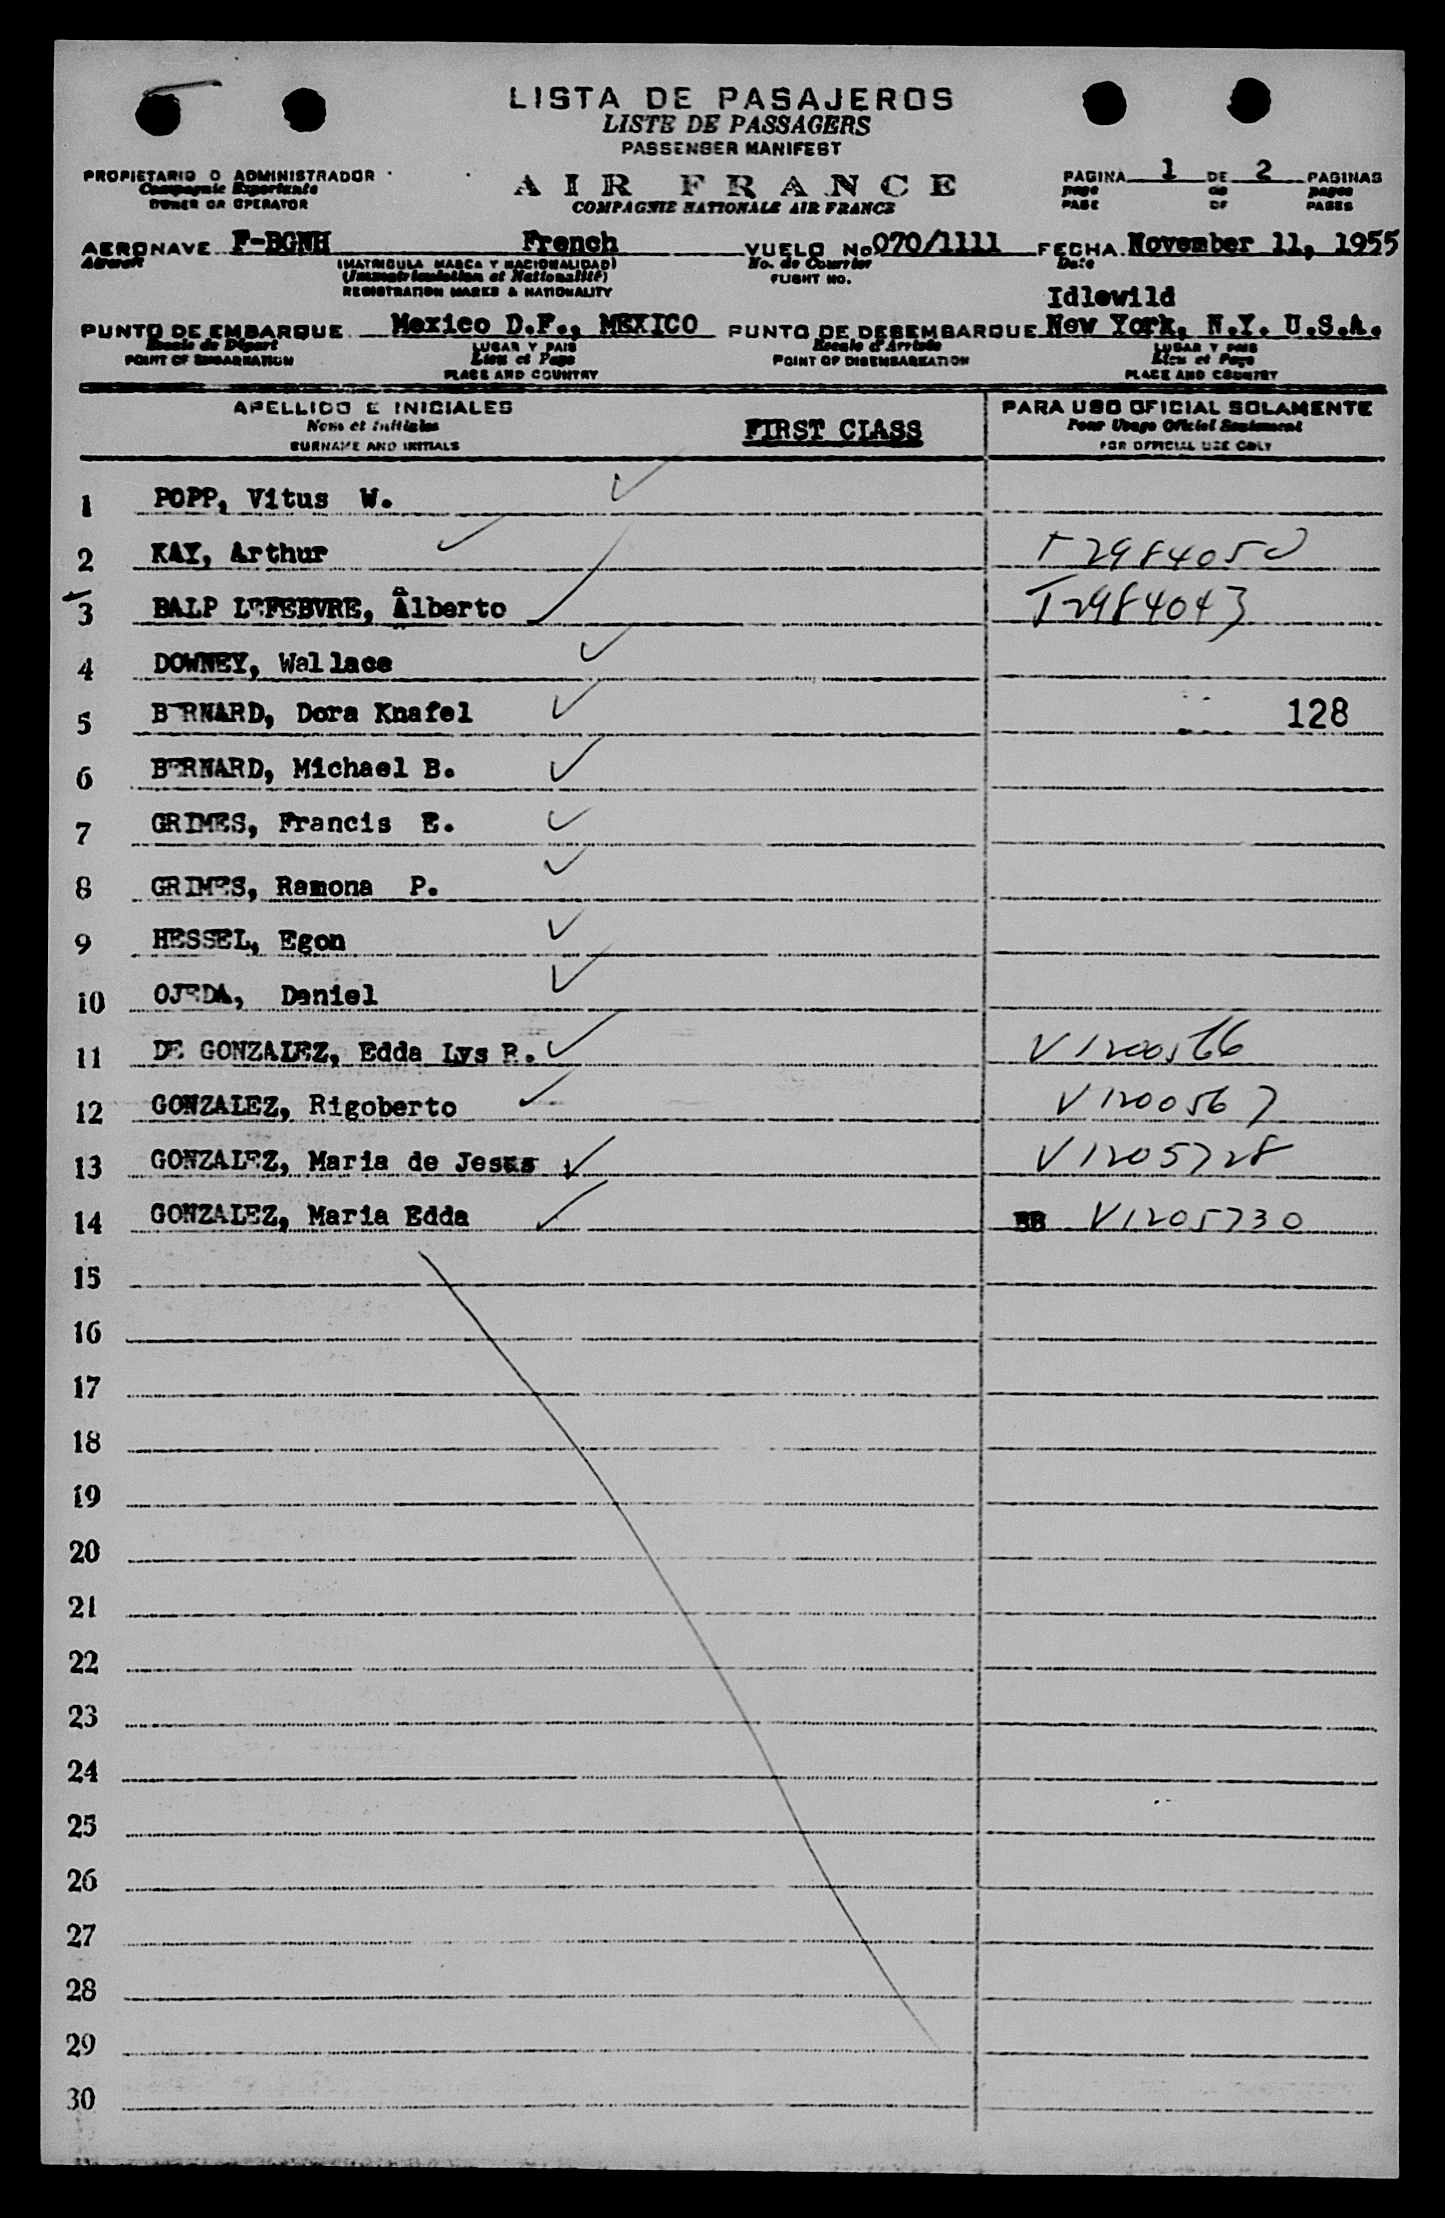 LISTA DE PASAJEROS
LISTE DE PASSAGERS
PASSENGER MANIFEST
PROPIETARIO O ADMINISTRADOR
Compagnie Exportante
OWNER OR OPERATOR
AIR FRANCE
COMPAGNIE NATIONALE AIR FRANCE
PAGINA 1 DE 2 PAGINAS
page de pages
PAGE OF PAGES
AERONAVE F-BGNH French VUELO No 070/1111 FECHA November 11, 1955
Aircraft (MATRICULA MARCA Y NACIONALIDAD) No. de Courrier Date
(Immatriculation et Nationalité) FLIGHT NO.
REGISTRATION MARKS & NATIONALITY
Idlewild
PUNTO DE EMBARQUE Mexico D.F., MEXICO PUNTO DE DESEMBARQUE New York, N.Y. U.S.A.
Escale du Départ LUGAR Y PAIS Escale d'Arrivée LUGAR Y PAIS
POINT OF EMBARKATION Lieu et Pays POINT OF DISEMBARKATION Lieu et Pays
PLACE AND COUNTRY PLACE AND COUNTRY
APELLIDO E INICIALES PARA USO OFICIAL SOLAMENTE
Nom et Initiales FIRST CLASS Pour Usage Officiel Seulement
SURNAME AND INITIALS FOR OFFICIAL USE ONLY
1 POPP, Vitus W.
2 KAY, Arthur T2984050
3 BALP LEFEBVRE, Alberto T2984043
4 DOWNEY, Wallace
5 BERNARD, Dora Knafel 128
6 BERNARD, Michael B.
7 GRIMES, Francis E.
8 GRIMES, Ramona P.
9 HESSEL, Egon
10 OJEDA, Daniel
11 DE GONZALEZ, Edda Lys R. V1200566
12 GONZALEZ, Rigoberto V1200567
13 GONZALEZ, Maria de Jesus V1205728
14 GONZALEZ, Maria Edda BB V1205730
15
16
17
18
19
20
21
22
23
24
25
26
27
28
29
30